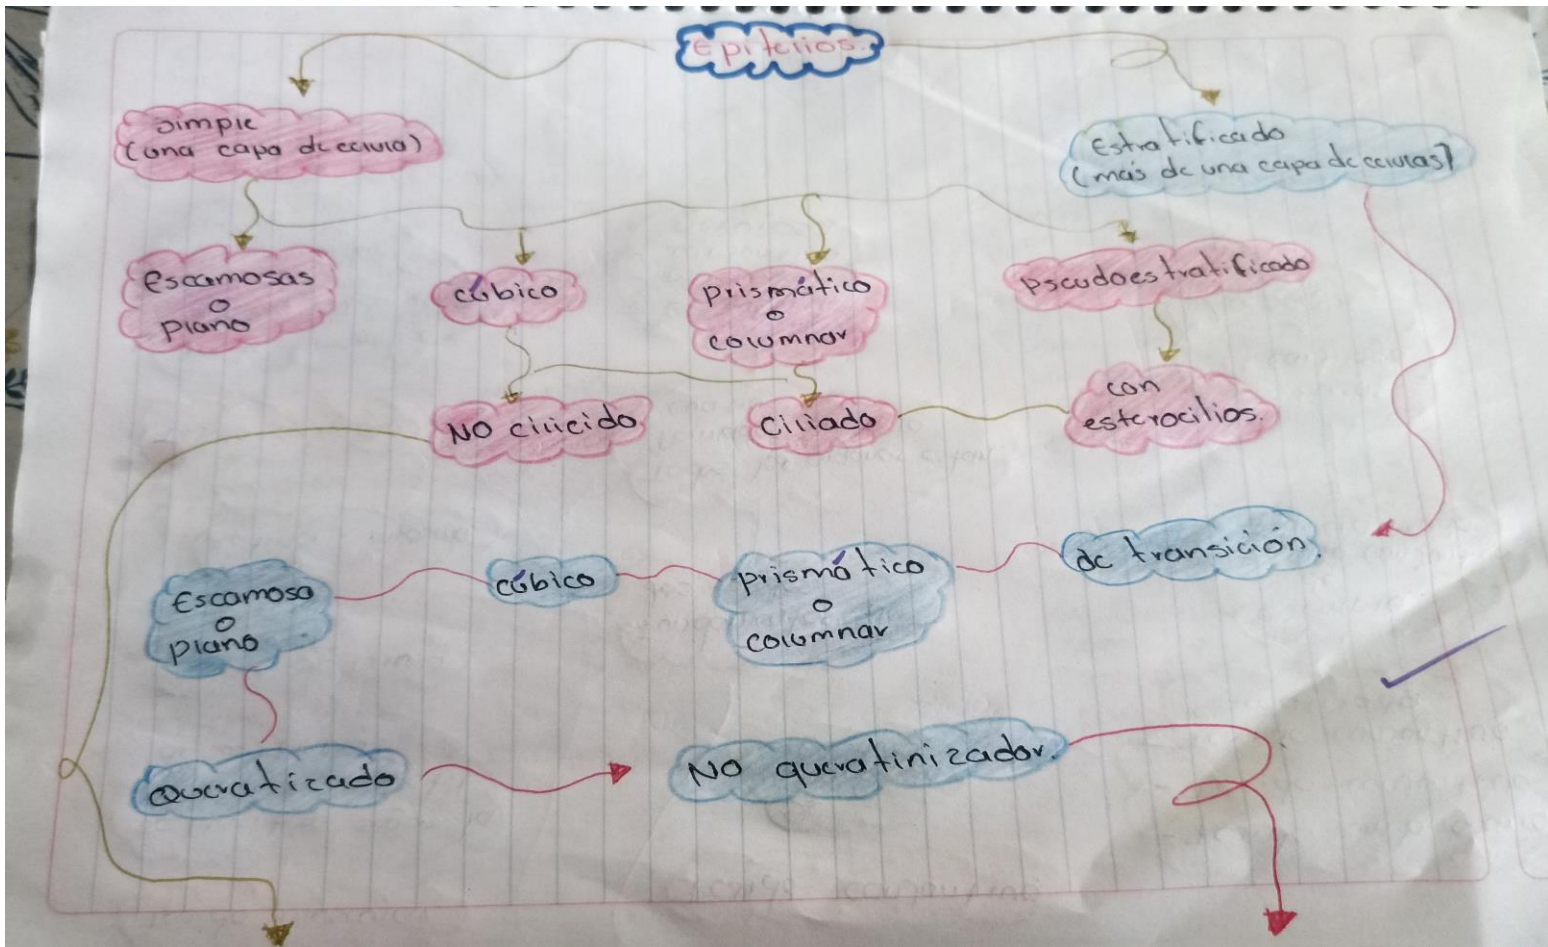 Epiterios.
Simple
(una capa de celula)
Estratificado
(más de una capa de celulas)
Escamosas
o
plano
cúbico
prismático
o
columnar
Pseudoestratificado
NO cilicido
Ciliado
con
esterocilios.
Escamoso
o
plano
cúbico
prismático
o
columnar
de transición.
Queratizado
NO queratinizador.